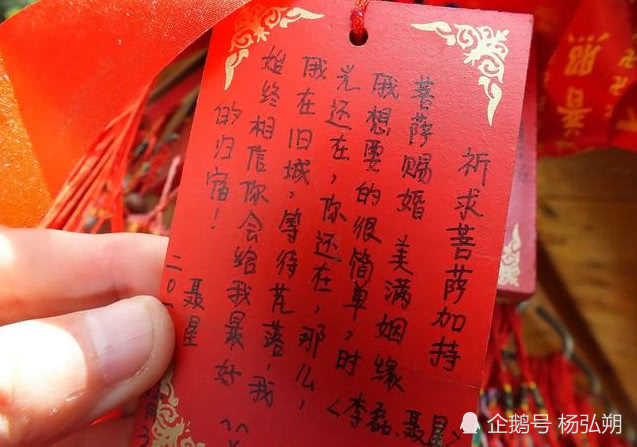 祈求菩萨加持
菩萨赐婚 美满姻缘
〈李磊.聂星
俄想要的很简单,时
光还在,你还在,那么,
俄在旧城,等待花落,我
始终相信你会给我最好
的归宿!
聂星
二0
普照
企鹅号 杨弘朔